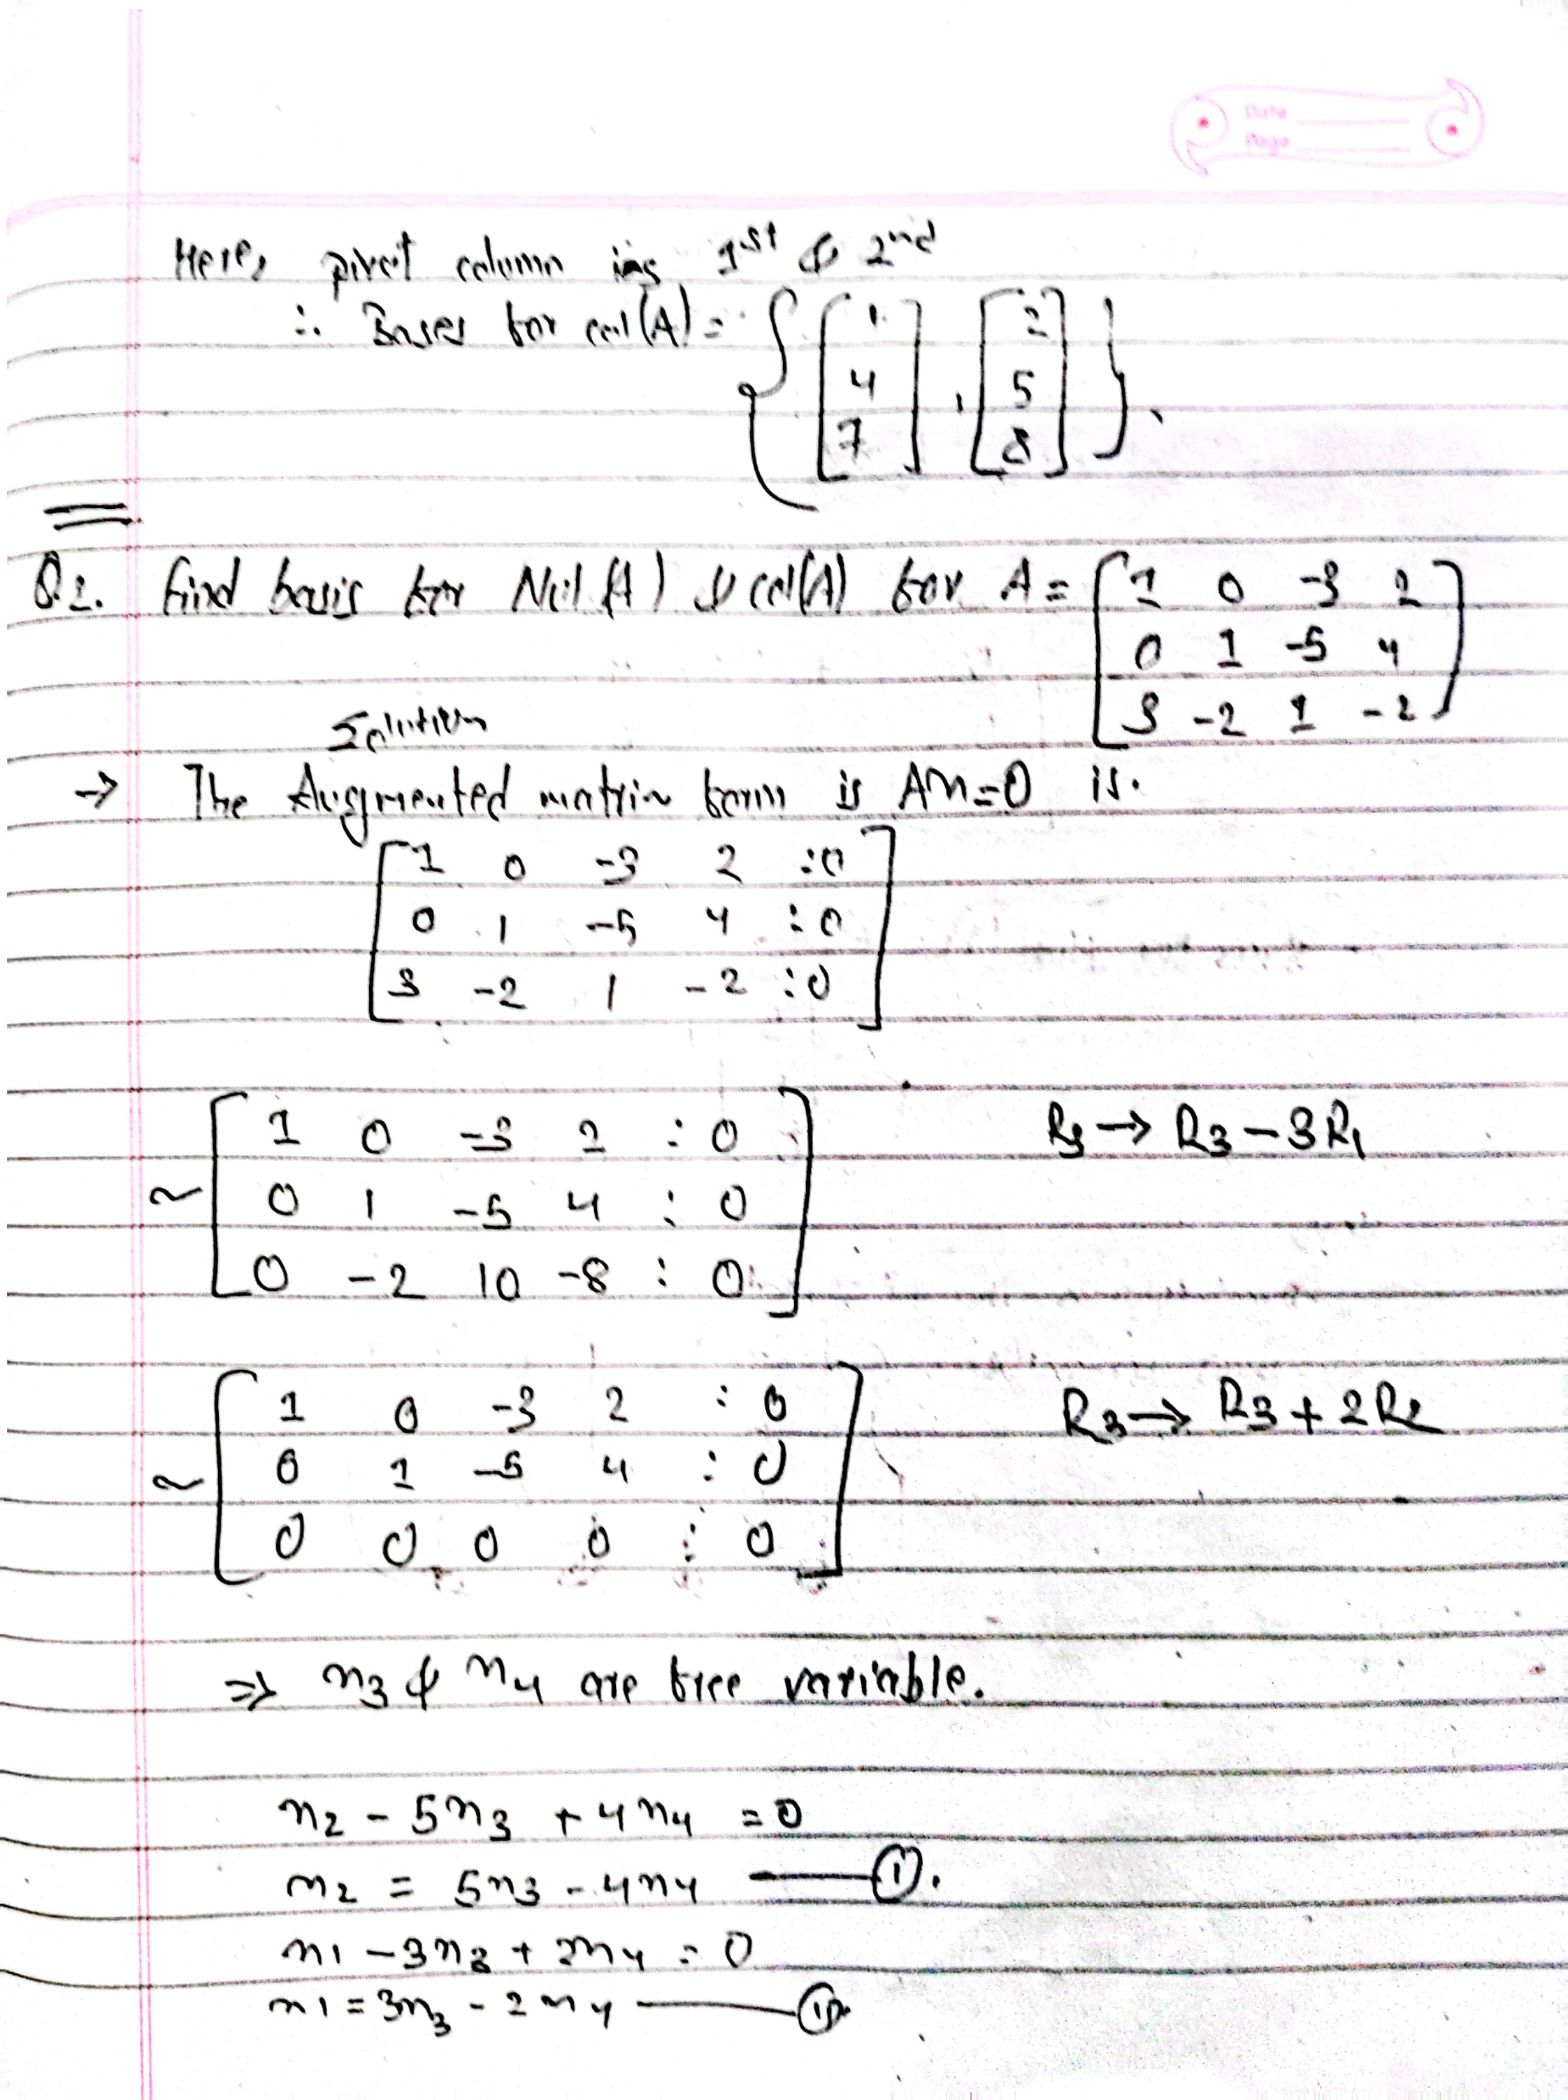 Date
Page
Here, pivot column is 1st & 2nd
∴ Bases for col(A) = { [1 4 7], [2 5 8] }.
Q.2. find basis for Nul(A) & col(A) for A = [1 0 -3 2
0 1 -5 4
3 -2 1 -2]
Solution
→ The Augmented matrix form is Ax=0 is.
[1 0 -3 2 :0
0 1 -5 4 :0
3 -2 1 -2 :0]
[1 0 -3 2 : 0 R3 → R3 - 3R1
~ 0 1 -5 4 : 0
0 -2 10 -8 : 0]
[1 0 -3 2 : 0 R3 → R3 + 2R2
~ 0 1 -5 4 : 0
0 0 0 0 : 0]
⇒ x3 & x4 are free variable.
x2 - 5x3 + 4x4 = 0
x2 = 5x3 - 4x4 — (i).
x1 - 3x3 + 2x4 = 0
x1 = 3x3 - 2x4 — (ii)